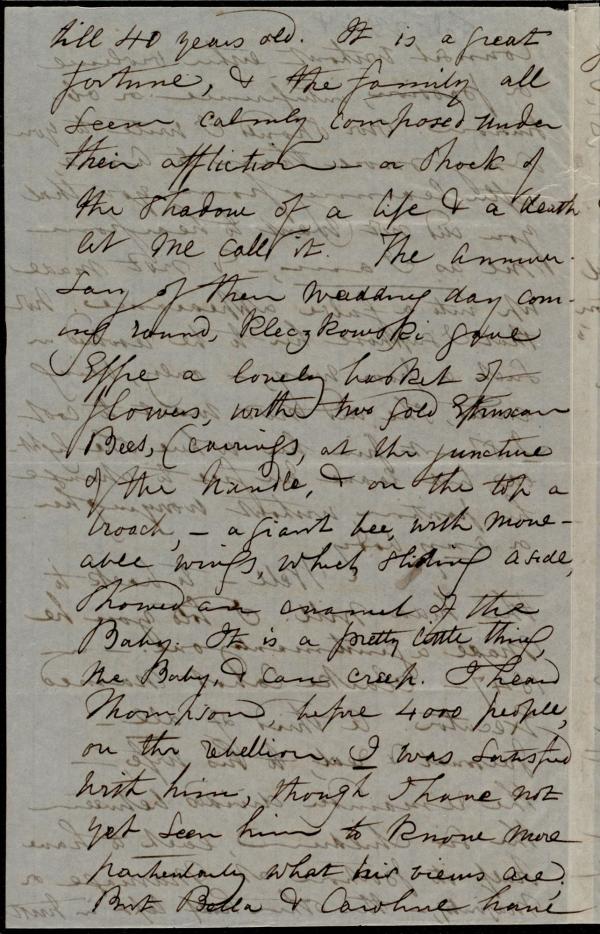 till 40 years old. It is a great
fortune, & the family all
seem calmly composed under
their affliction – or shock of
the shadow of a life & a death
let me call it. The anniver-
sary of their wedding day com-
ing round, Kleczkowski gave
Effie a lovely basket of
flowers, with two gold Etruscan
Bees, (earrings, at the juncture
of the handle, & on the top a
broach, – a giant bee, with move-
able wings, which sliding aside,
showed an enamel of the
Baby. It is a pretty little thing,
the Baby, & can creep. I heard
Thompson, before 4000 people,
on the rebellion I was satisfied
with him, though I have not
yet seen him to know more
particularly what his views are.
But Bella & Caroline have